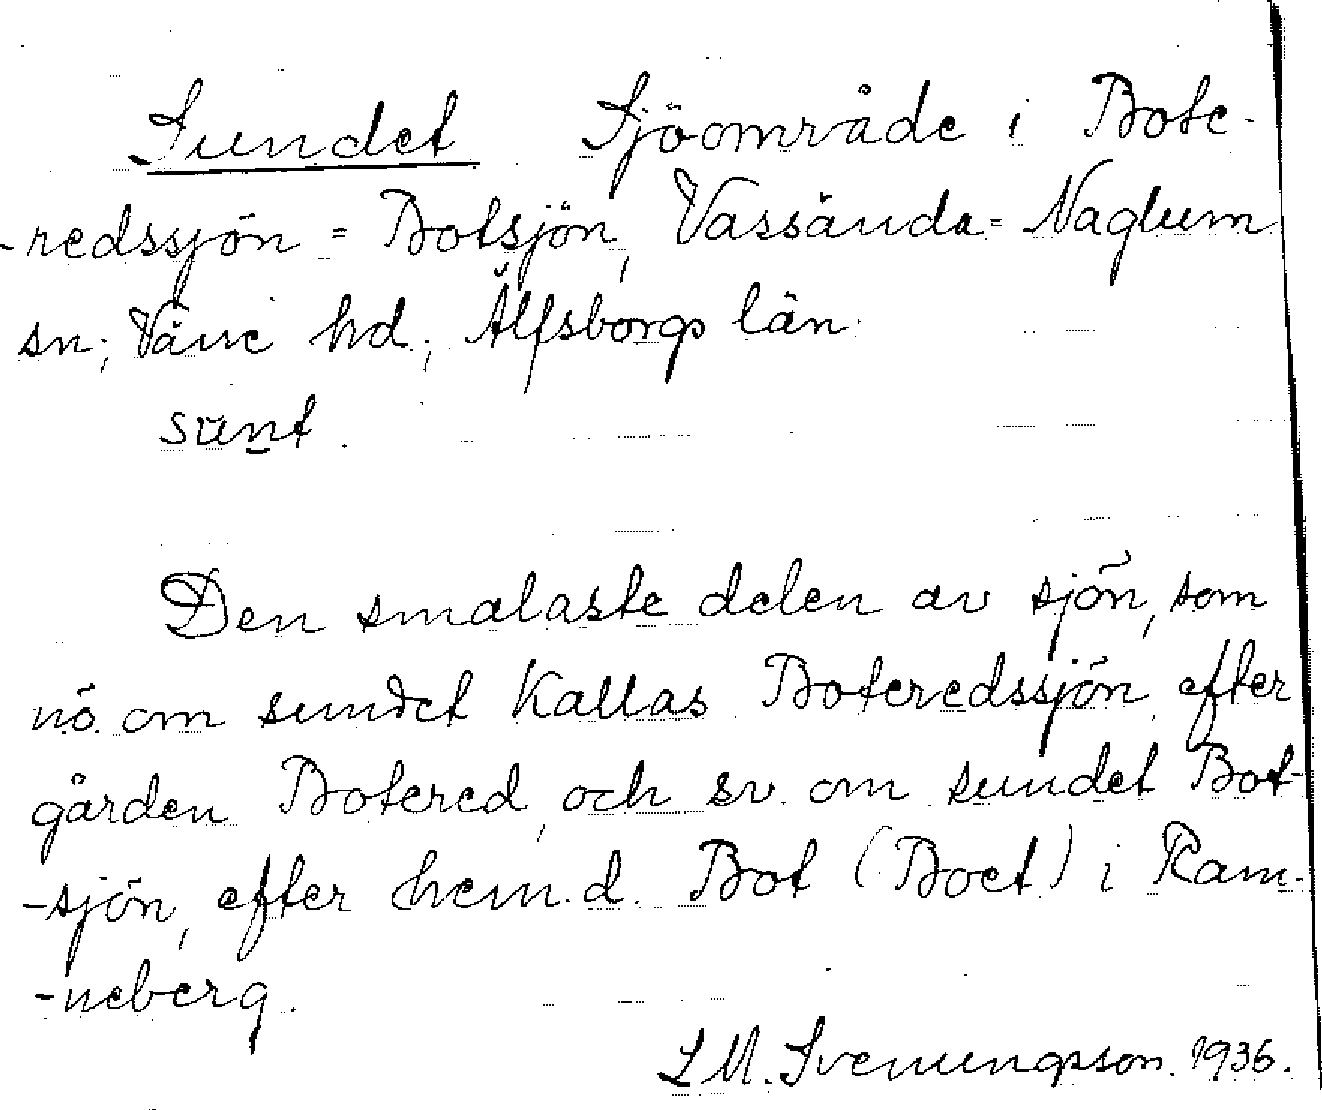 Sundet Sjöområde i Bote-
-redssjön = Botsjön, Vassända = Naglum
sn; Väne hd; Älfsborgs län.
sunt.
Den smalaste delen av sjön, som
nö. om sundet kallas Boteredssjön efter
gården Botered, och sv. om sundet Bot-
-sjön, efter hem.d. Bot (Boet) i Ram-
-neberg.
L M. Svenungsson. 1936.